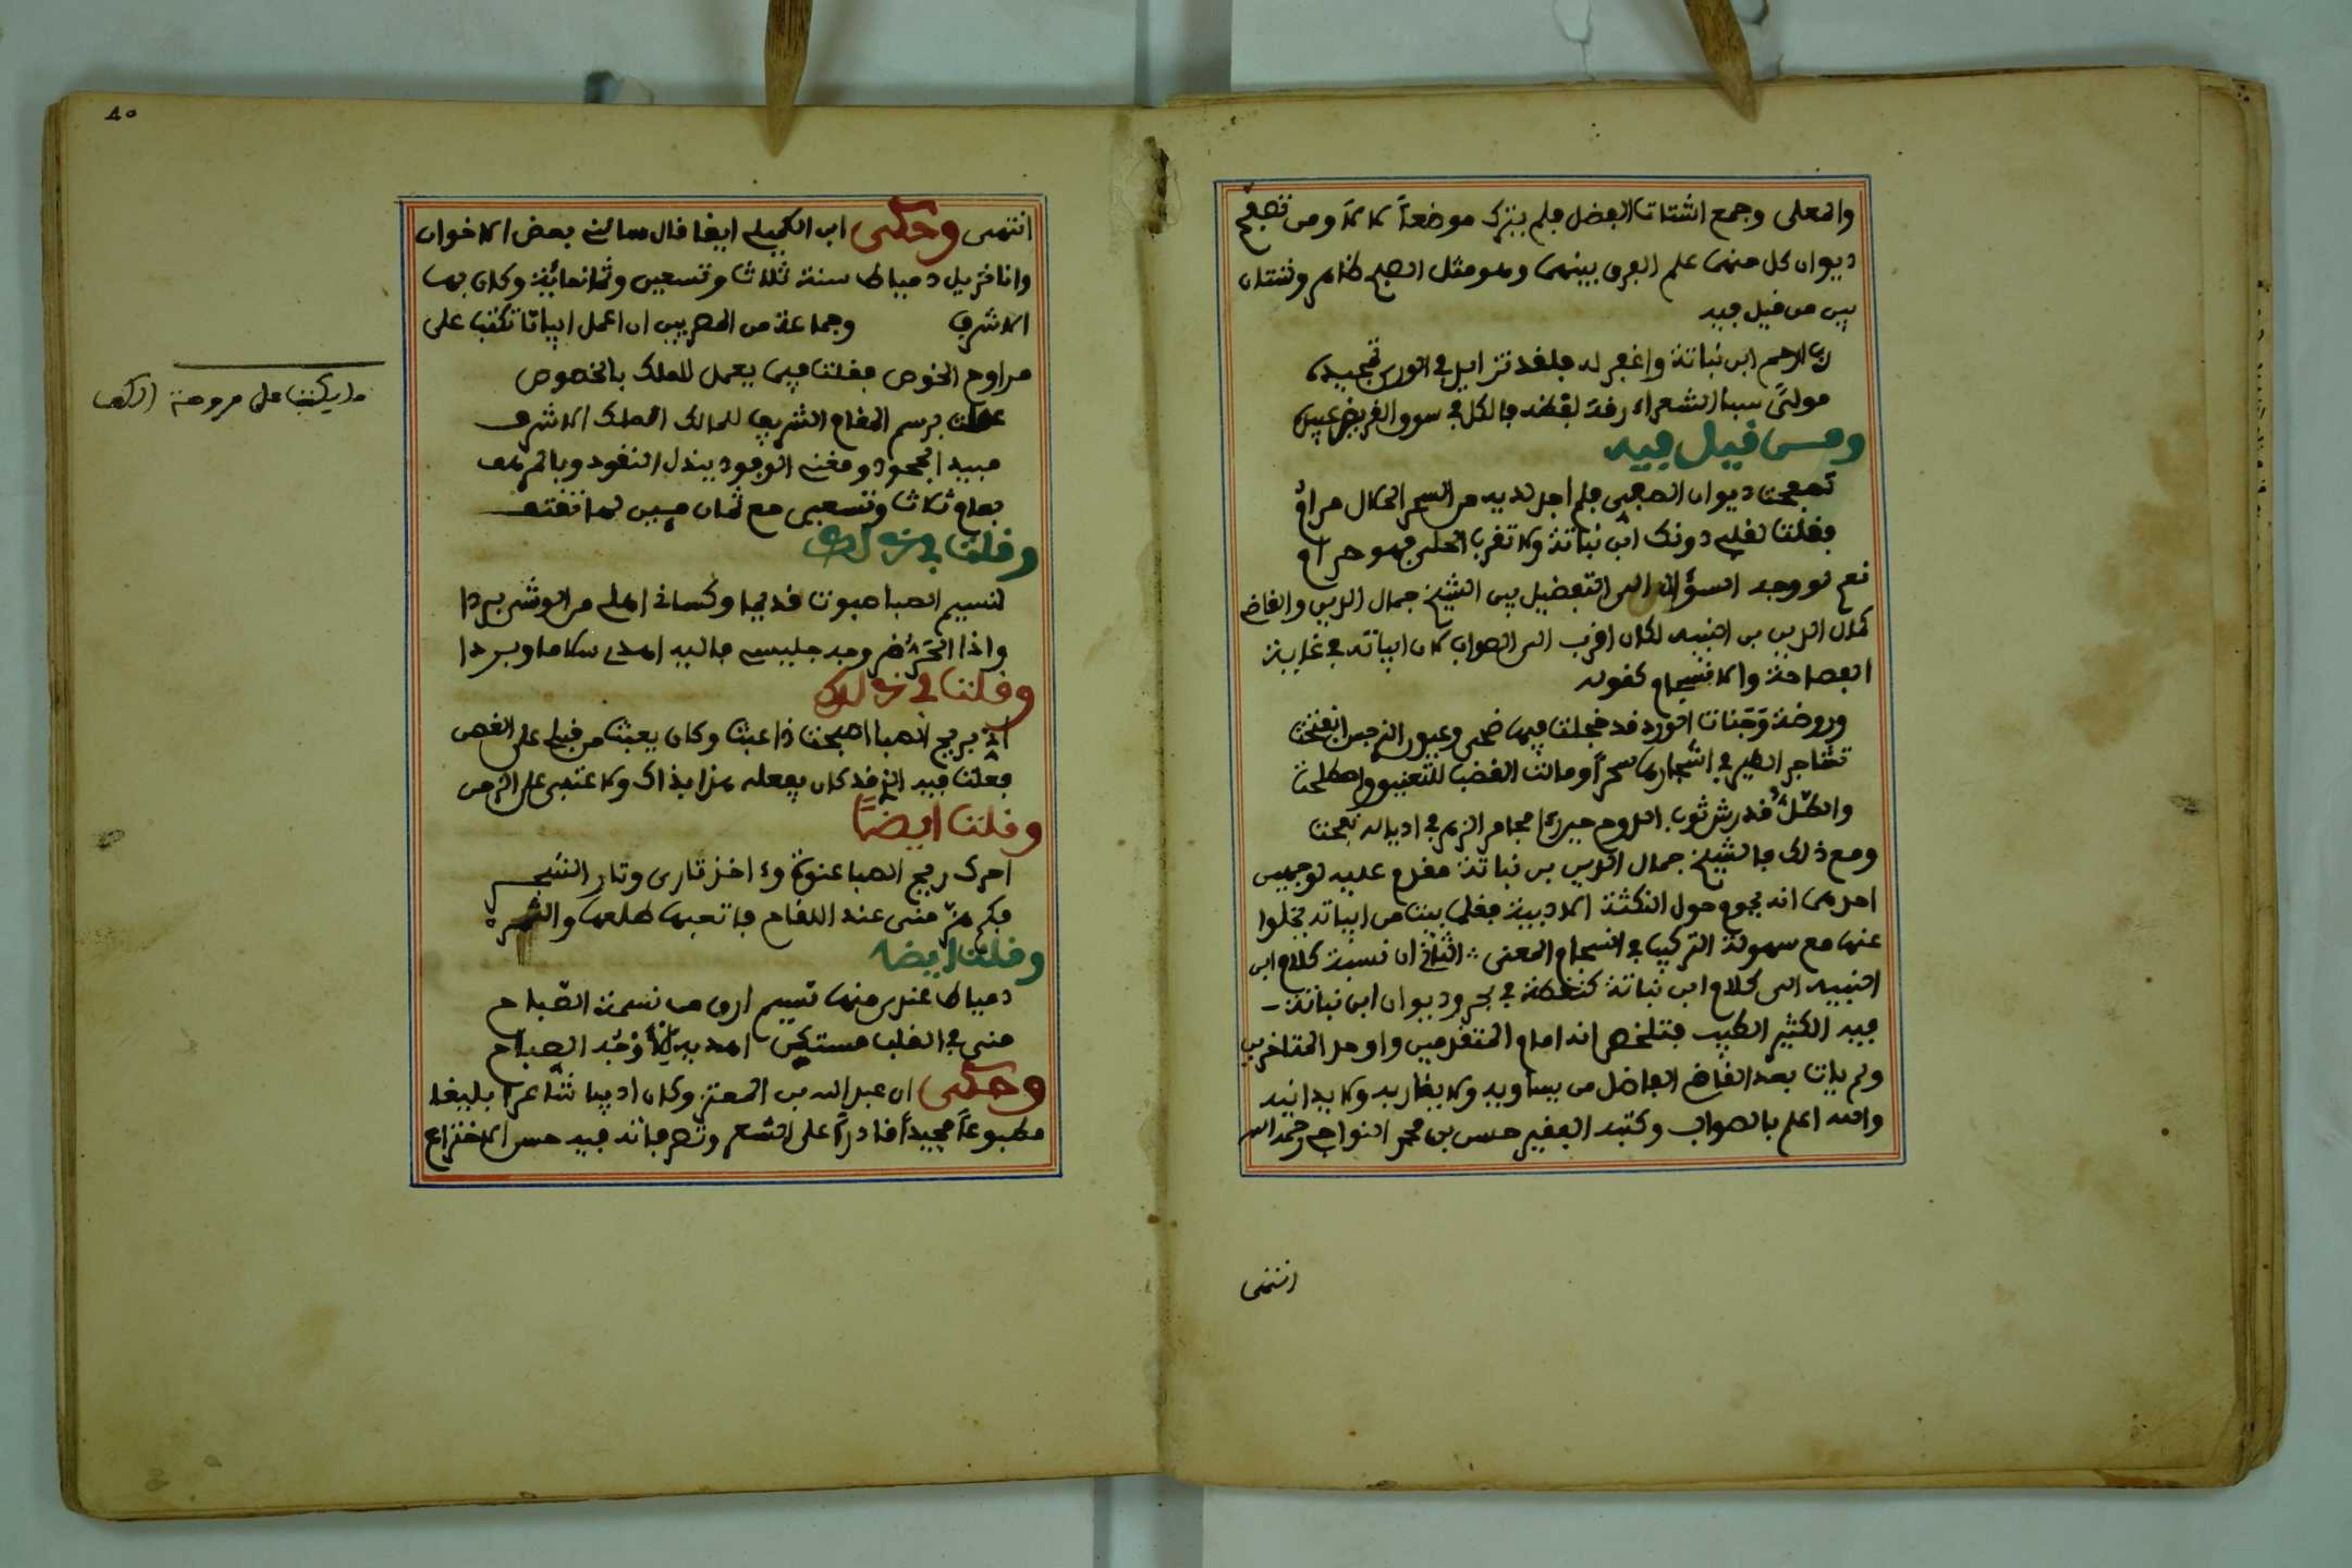 والمعلى وجمع اشتات الفضل فلم يترك موضعاً للامّا ومن تصفح
ديوان كل منهما علم الفرق بينهما وهو مثل الصبح ظاهر وشتان
بين من قيل فيه
رب ارحم ابن نباتة واغفر له فلقد تزايد في الورى تمجيده
مولىً سبا الشعراء رقة لفظه فالكل في سوق القريض عبيده
ومن قيل فيه
تصفحت ديوان الصفي فلم اجد لديه من السحر الحلال مرامُ
فقلت لقلبي دونك ابن نباتة ولا تقرب الحلي فهو حرام
نعم لو وجه السؤال الى التفضيل بين الشيخ جمال الدين والقاضي
كمال الدين بن النبيه لكان اقرب الى الصواب لان ابياته في غاية
الفصاحة والانسجام كقوله
وروضة وجنات الورد قد خجلت فيها ضحى وعيون النرجس انفتحت
تشاجر الطير في اشجارها سحراً ومالت القضب للتعنيق واصطلحت
والطلّ قد رش ثوب الدوح حين رأى مجامر الزهر في اذياله نفحت
ومع ذلك فالشيخ جمال الدين بن نباتة مقدم عليه لوجهين
احدهما انه يحوم حول النكتة الادبية فقل بيت من ابياته يخلوا
عنها مع سهولة التركيب في انسجام المعنى الثاني ان نسبة كلام ابن
النبيه الى كلام ابن نباتة كنقطة في بحر وديوان ابن نباتة
فيه الكثير الطيب فتلخص انه امام المتقدمين واوحد المتاخرين
ولم يات بعد القاضي الفاضل من يساويه ولا يقاربه ولا يدانيه
والله اعلم بالصواب وكتبه الفقير حسن بن محمد النواجي رحمه الله
انتهى
٨٥
انتهى وحكى ابن الكميلي ايضا قال سالني بعض الاخوان
وانا نزيل دمياط سنة ثلاث وتسعين وثمانمائة وكان بها
الاشرف وجماعة من المصريين ان اعمل ابياتا تكتب على
مراوح الخوص فقلت فيما يعمل للملك بالخصوص
عملت برسم المقام الشريف للمالك الملك الاشرف
مبيد الجحود ومغني الوجود ببذل النقود وبالمرهف
بعام ثلاث وتسعين مع ثمان ميين لها تقتف
وقلت في ذلك
لنسيم الصبا صبوت قديما وكساني اهلي من الوشي بردا
واذا الحَرُّ ضر وجه جليسي فاليه اهدي سلاما وبردا
وقلت في ذلك
ان بريح الصبا اصبحت ذا عبث وكان يعبث من قبلي على الغصن
فعلت فيه الذي قد كان يفعله هذا بذاك ولا عتبى على الزمن
وقلت ايضاً
احرك ريح الصبا عنوة واخذ ثاري وثار الشجر
فكم هزّ مني عند اللقاح فاتعبها طلعها والثمر
وقلت ايضا
دمياط عندي منها نسيم ارق من نسمة الصباح
مني في القلب مستكن اهديه لأوجُه الصباح
وحكى ان عبد الله بن المعتز وكان اديبا شاعرا بليغا
مطبوعاً مجيداً قادراً على الشعر وتصرفاته فيه حسن الاختراع
ما يكتب على مروحة الكف